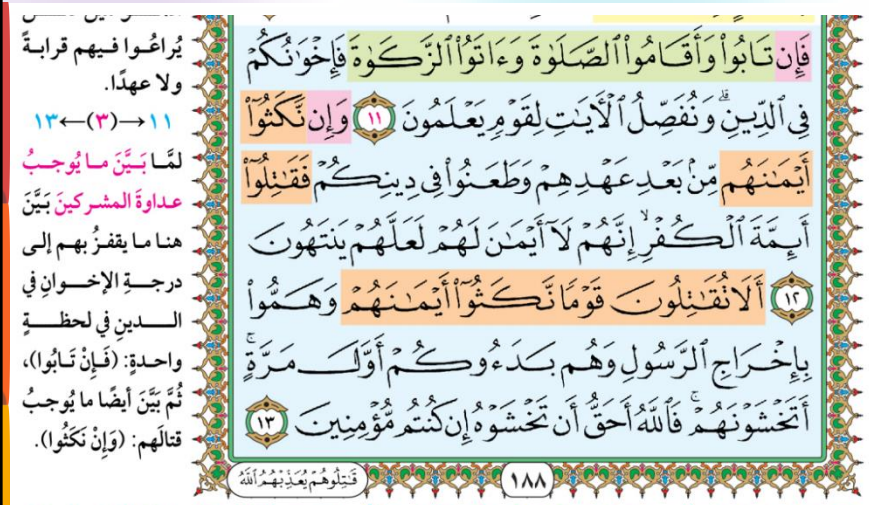 فَإِن تَابُوا۟ وَأَقَامُوا۟ ٱلصَّلَوٰةَ وَءَاتَوُا۟ ٱلزَّكَوٰةَ فَإِخْوَٰنُكُمْ
فِى ٱلدِّينِ ۗ وَنُفَصِّلُ ٱلْءَايَٰتِ لِقَوْمٍ يَعْلَمُونَ ١١ وَإِن نَّكَثُوٓا۟
أَيْمَٰنَهُم مِّنۢ بَعْدِ عَهْدِهِمْ وَطَعَنُوا۟ فِى دِينِكُمْ فَقَٰتِلُوٓا۟
أَئِمَّةَ ٱلْكُفْرِ ۙ إِنَّهُمْ لَآ أَيْمَٰنَ لَهُمْ لَعَلَّهُمْ يَنتَهُونَ
١٢ أَلَا تُقَٰتِلُونَ قَوْمًا نَّكَثُوٓا۟ أَيْمَٰنَهُمْ وَهَمُّوا۟
بِإِخْرَاجِ ٱلرَّسُولِ وَهُم بَدَءُوكُمْ أَوَّلَ مَرَّةٍ ۚ
أَتَخْشَوْنَهُمْ ۚ فَٱللَّهُ أَحَقُّ أَن تَخْشَوْهُ إِن كُنتُم مُّؤْمِنِينَ ١٣
١٨٨
قَٰتِلُوهُمْ يُعَذِّبْهُمُ ٱللَّهُ
يُراعُوا فيهم قرابةً
ولا عهدًا.
١١→(٣)←١٣
لمَّا بَيَّنَ ما يُوجبُ
عداوةَ المشركينَ بَيَّنَ
هنا ما يقفزُ بهم إلى
درجةِ الإخوانِ في
الدينِ في لحظةٍ
واحدةٍ: (فَإِنْ تَابُوا)،
ثُمَّ بَيَّنَ أيضًا ما يُوجبُ
قتالَهم: (وَإِنْ نَكَثُوا).